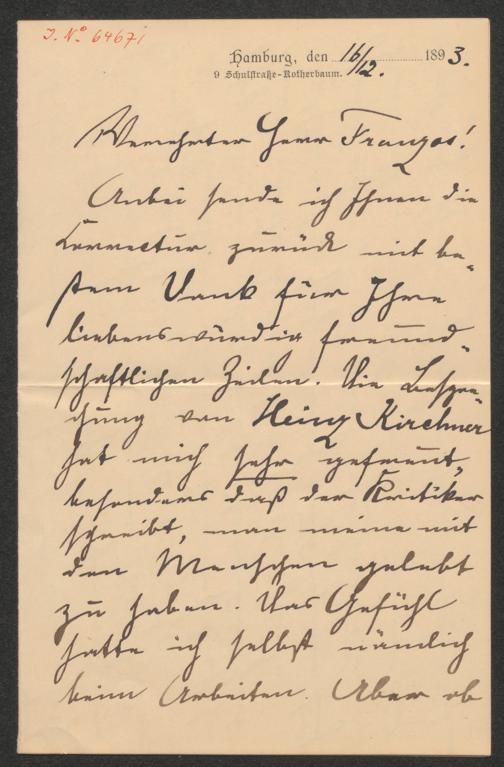 J. N. 64671
Hamburg, den 16/12. 1893.
9 Schulstraße-Rotherbaum.
Verehrter Herr Franzos!
Anbei sende ich Ihnen die
Correctur zurück mit be-
stem Dank für Ihre
liebenswürdig freund-
schaftlichen Zeilen. Die Bespre-
chung von Heinz Kirchner
hat mich sehr gefreut,
besonders daß der Kritiker
schreibt, man meine mit
den Menschen gelebt
zu haben. Das Gefühl
hatte ich selbst nämlich
beim Arbeiten. Aber ob